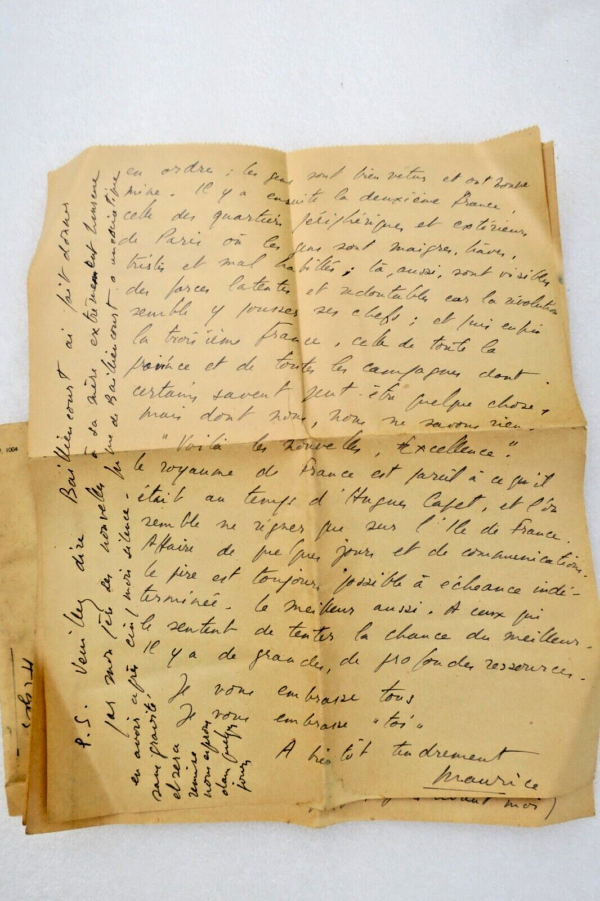 en ordre ; les gens sont bien vêtus et ont bonne
mine. Il y a ensuite la deuxième France,
celle des quartiers périphériques et extérieurs
de Paris où les gens sont maigres, hâves,
tristes et mal habillés ; là, aussi, sont visibles
des forces latentes et redoutables car la révolution
semble y pousser ses chefs ; et puis enfin
la troisième France, celle de toute la
province et de toutes les campagnes dont
certains savent peut-être quelque chose,
mais dont nous, nous ne savons rien.
"Voilà les nouvelles, Excellence".
le royaume de France est pareil à ce qu'il
était au temps d'Hugues Capet, et l'on
semble ne régner que sur l'Ile de France.
Affaire de quelques jours et de communications.
le pire est toujours possible à échéance indé-
terminée. le meilleur aussi. A ceux qui
le sentent de tenter la chance du meilleur.
Il y a de grandes, de profondes ressources.
Je vous embrasse tous
Je vous embrasse "toi"
A bientôt tendrement
Maurice
moi)
P.S. Veuillez dire Bailliencourt ai fait donner
par mon des nouvelles à sa mère extrêmement heureuse
en avoir après cinq mois silence. que de Bailliencourt a
sans gravité
et sera
remise
nous espérons
dans quelques
jours
1004